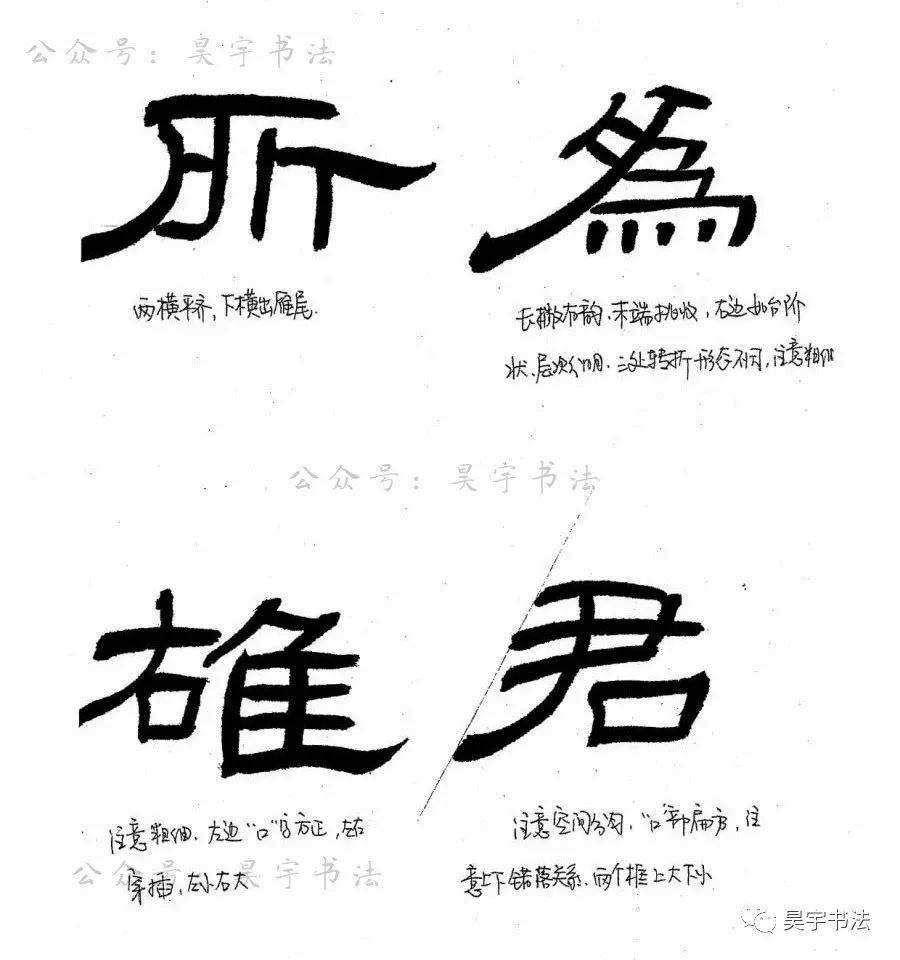 公众号：昊宇书法
所
為
两横平齐，下横出雁尾.
长撇有韵.末端挑收，右边如台阶
状.层次分明.三处转折形态不同，注意粗细
公众号：昊宇书法
雄
君
注意粗细.左边“口”字方正，左右
穿插，左小右大
注意空间匀，“口”部扁方，注
意上下错落关系.两个框上大下小
公众号：昊宇书法
昊宇书法